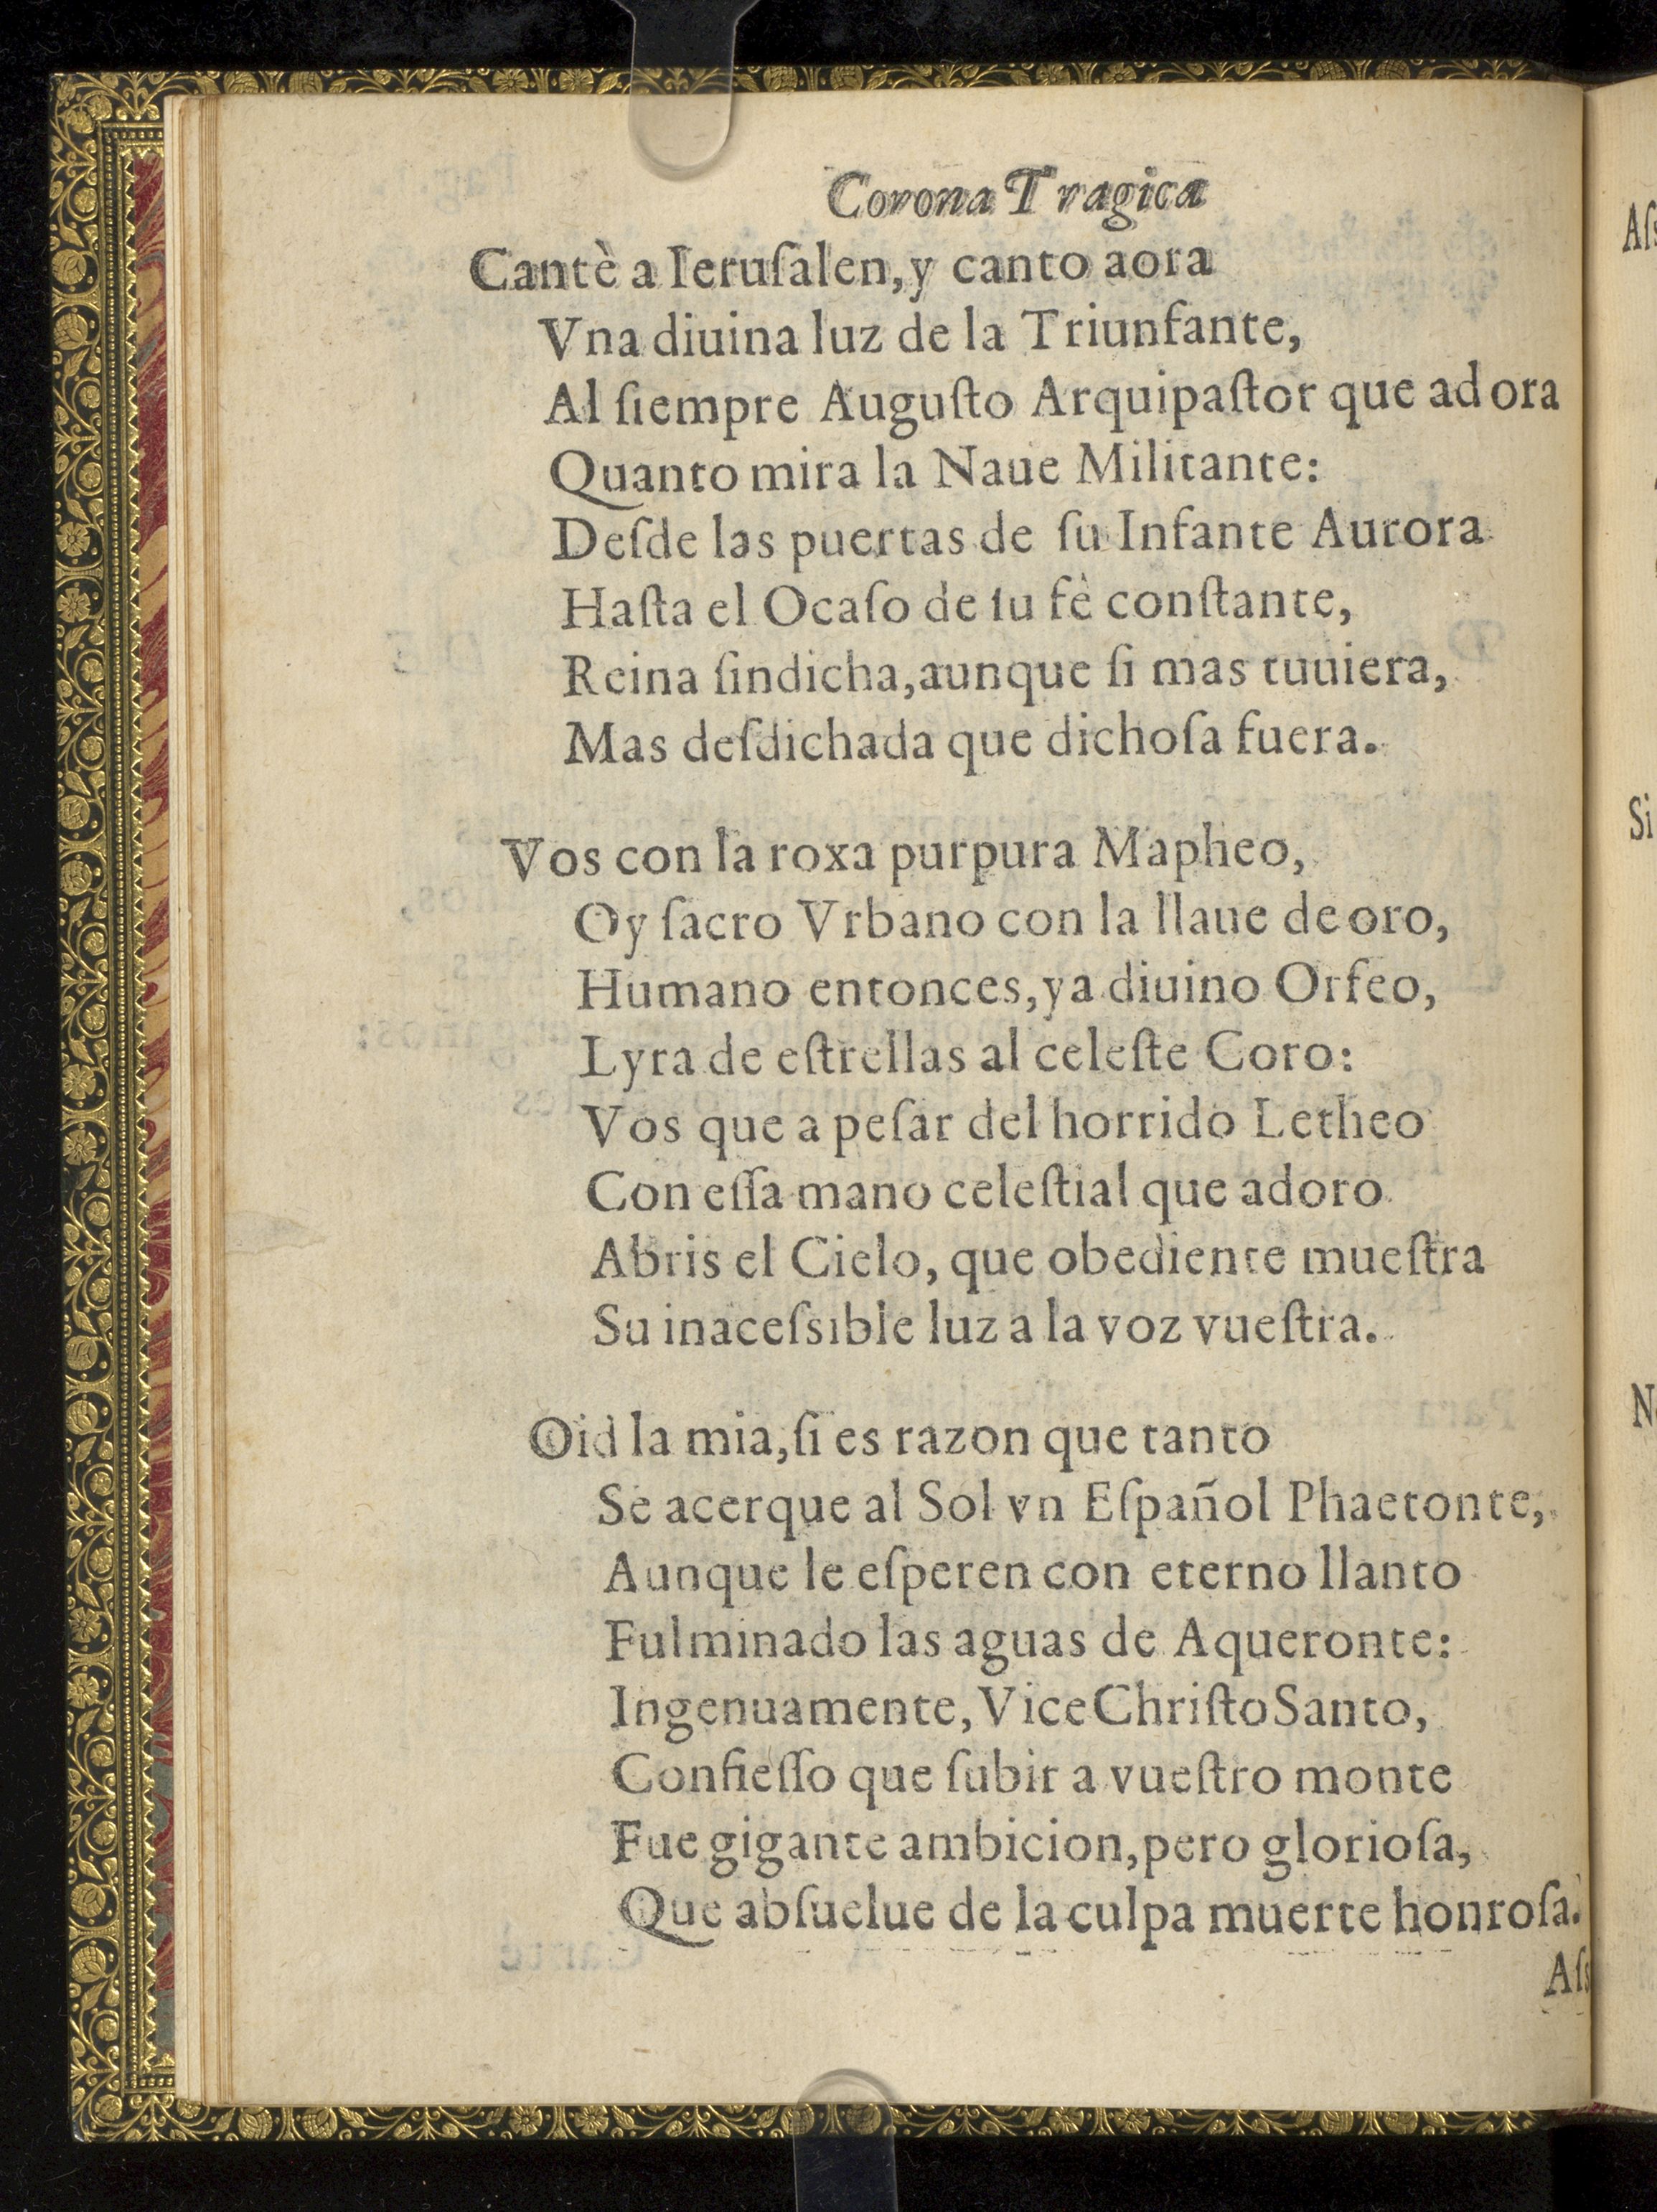 Corona Tragica
Cantè a Ieruſalen, y canto aora
Vna diuina luz de la Triunfante,
Al ſiempre Auguſto Arquipaſtor que adora
Quanto mira la Naue Militante:
Deſde las puertas de ſu Infante Aurora
Haſta el Ocaſo de ſu fè conſtante,
Reina ſindicha, aunque ſi mas tuuiera,
Mas deſdichada que dichoſa fuera.
Vos con la roxa purpura Mapheo,
Oy ſacro Vrbano con la llaue de oro,
Humano entonces, ya diuino Orfeo,
Lyra de eſtrellas al celeſte Coro:
Vos que a peſar del horrido Letheo
Con eſſa mano celeſtial que adoro
Abris el Cielo, que obediente mueſtra
Su inaceſsible luz a la voz vueſtra.
Oid la mia, ſi es razon que tanto
Se acerque al Sol vn Eſpañol Phaetonte,
Aunque le eſperen con eterno llanto
Fulminado las aguas de Aqueronte:
Ingenuamente, Vice Chriſto Santo,
Confieſſo que ſubir a vueſtro monte
Fue gigante ambicion, pero glorioſa,
Que abſuelue de la culpa muerte honroſa.
Aſs
Aſs
Si